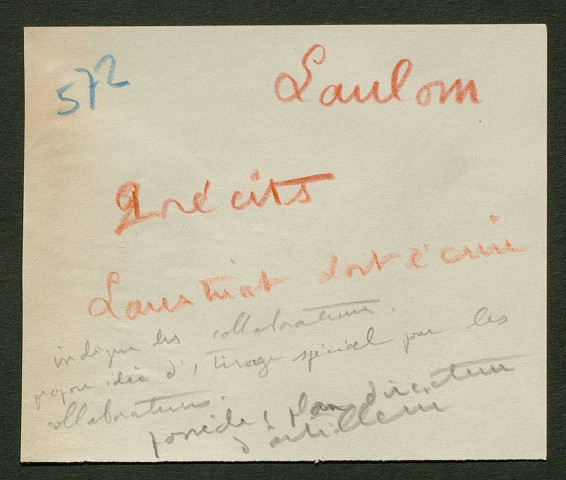 572
Laulom
Précits
doit écrire
indique des collaborateurs.
idée d'1 tirage spécial pour les
collaborateurs.
possède 1 plan directeur
d'artillerie